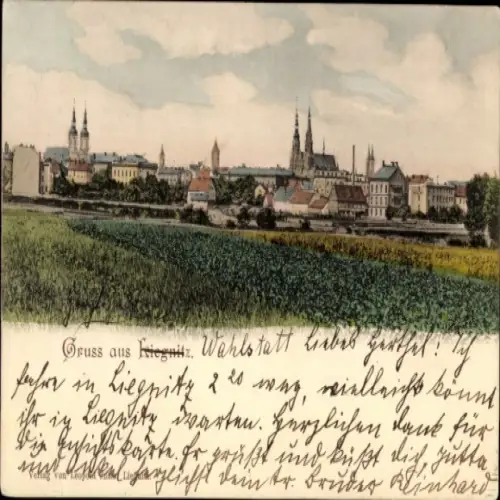 Gruss aus Liegnitz. Wahlstatt Liebes Herthel! Ich
fahre in Liegnitz 2 20 weg, vielleicht könnt
ihr in Liegnitz warten. Herzlichen dank für
die Ansichtskarte. Er grüßt und küßt dich, Jutta
und onkel herzlichst dein tr. bruder Reinhard
Verlag von Liegnitz.